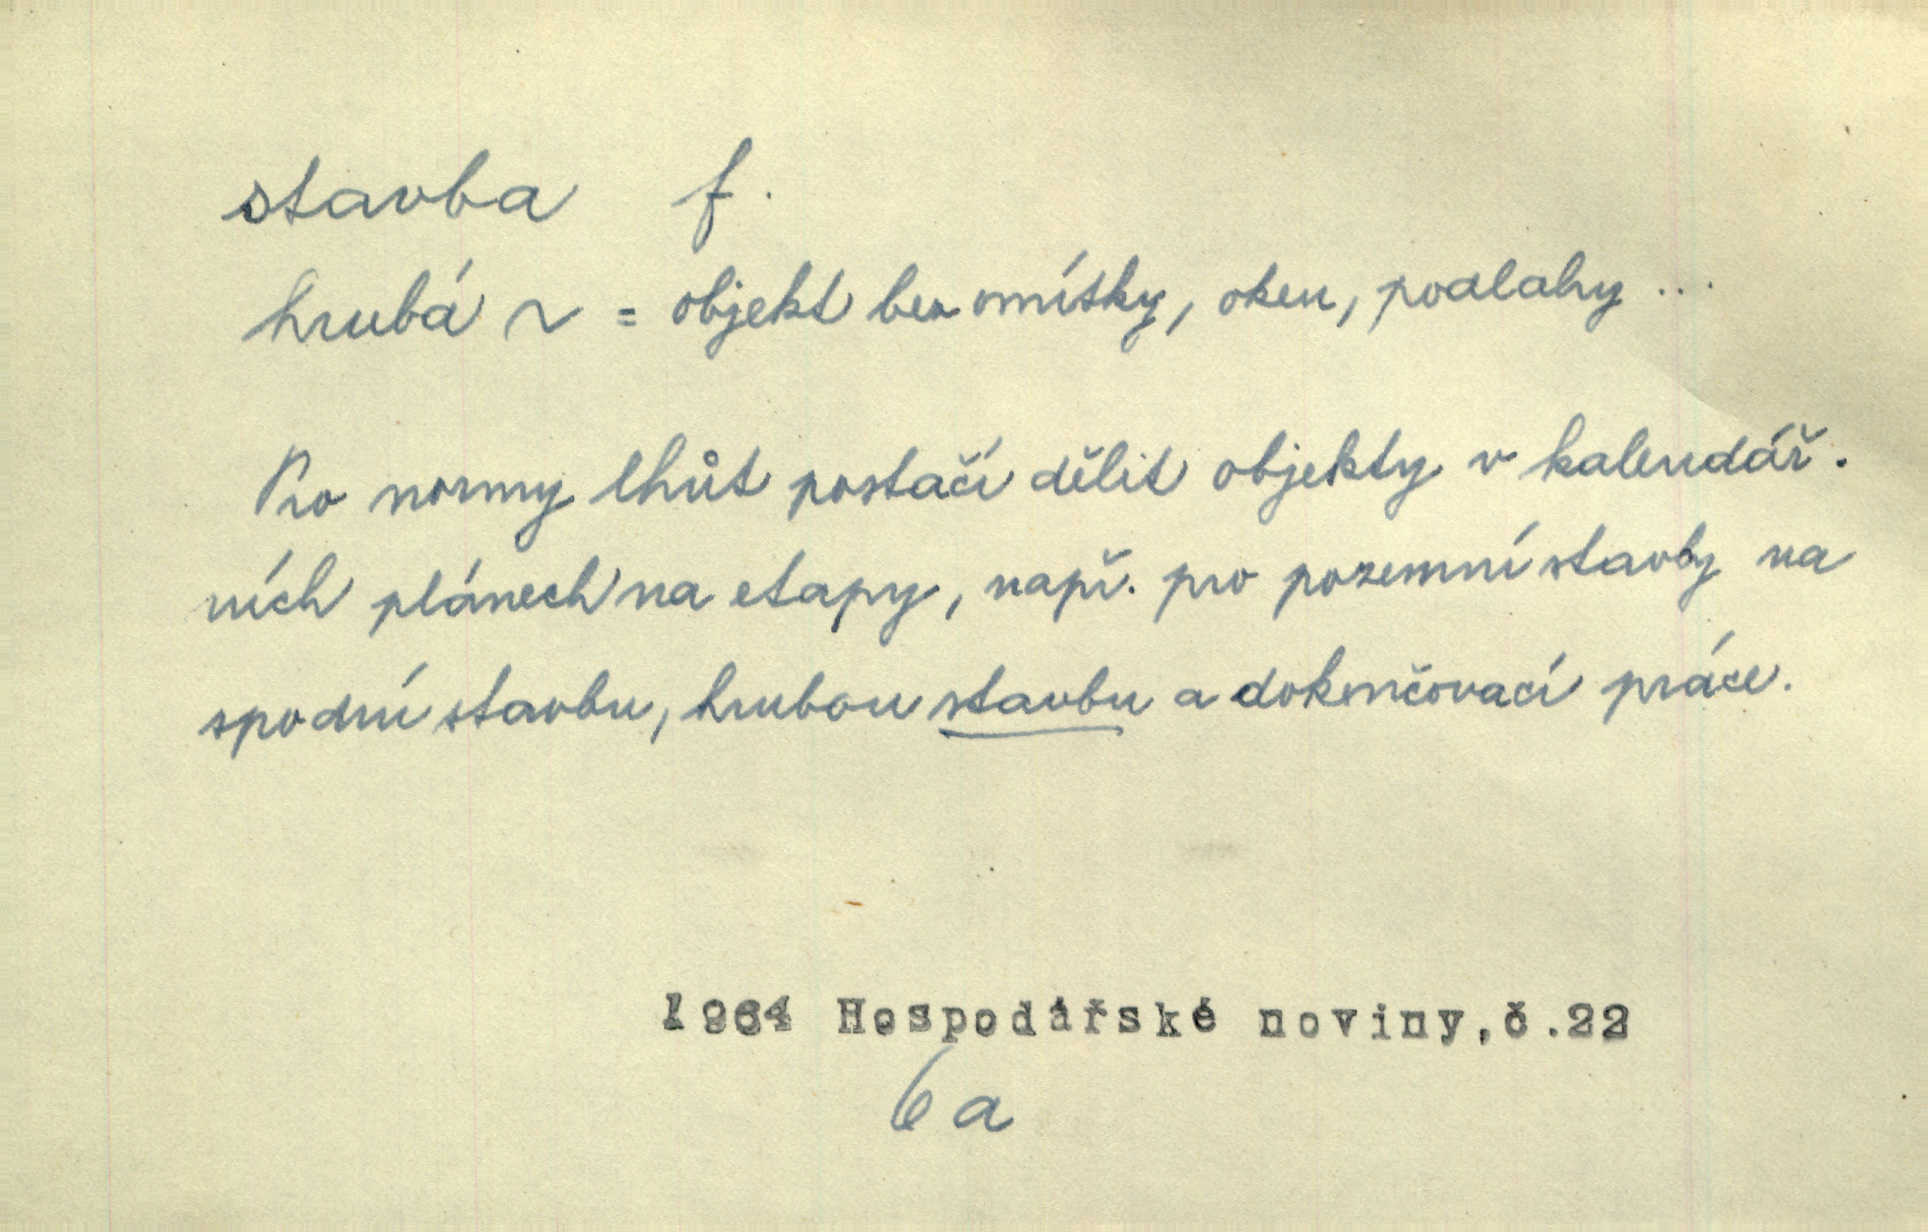 stavba f.
hrubá ~ = objekt bez omítky, oken, podlahy ...
Pro normy lhůt postačí dělit objekty v kalendář.
ních plánech na etapy, např. pro pozemní stavby na
spodní stavbu, hrubou stavbu a dokončovací práce.
1964 Hospodářské noviny,č.22
6a